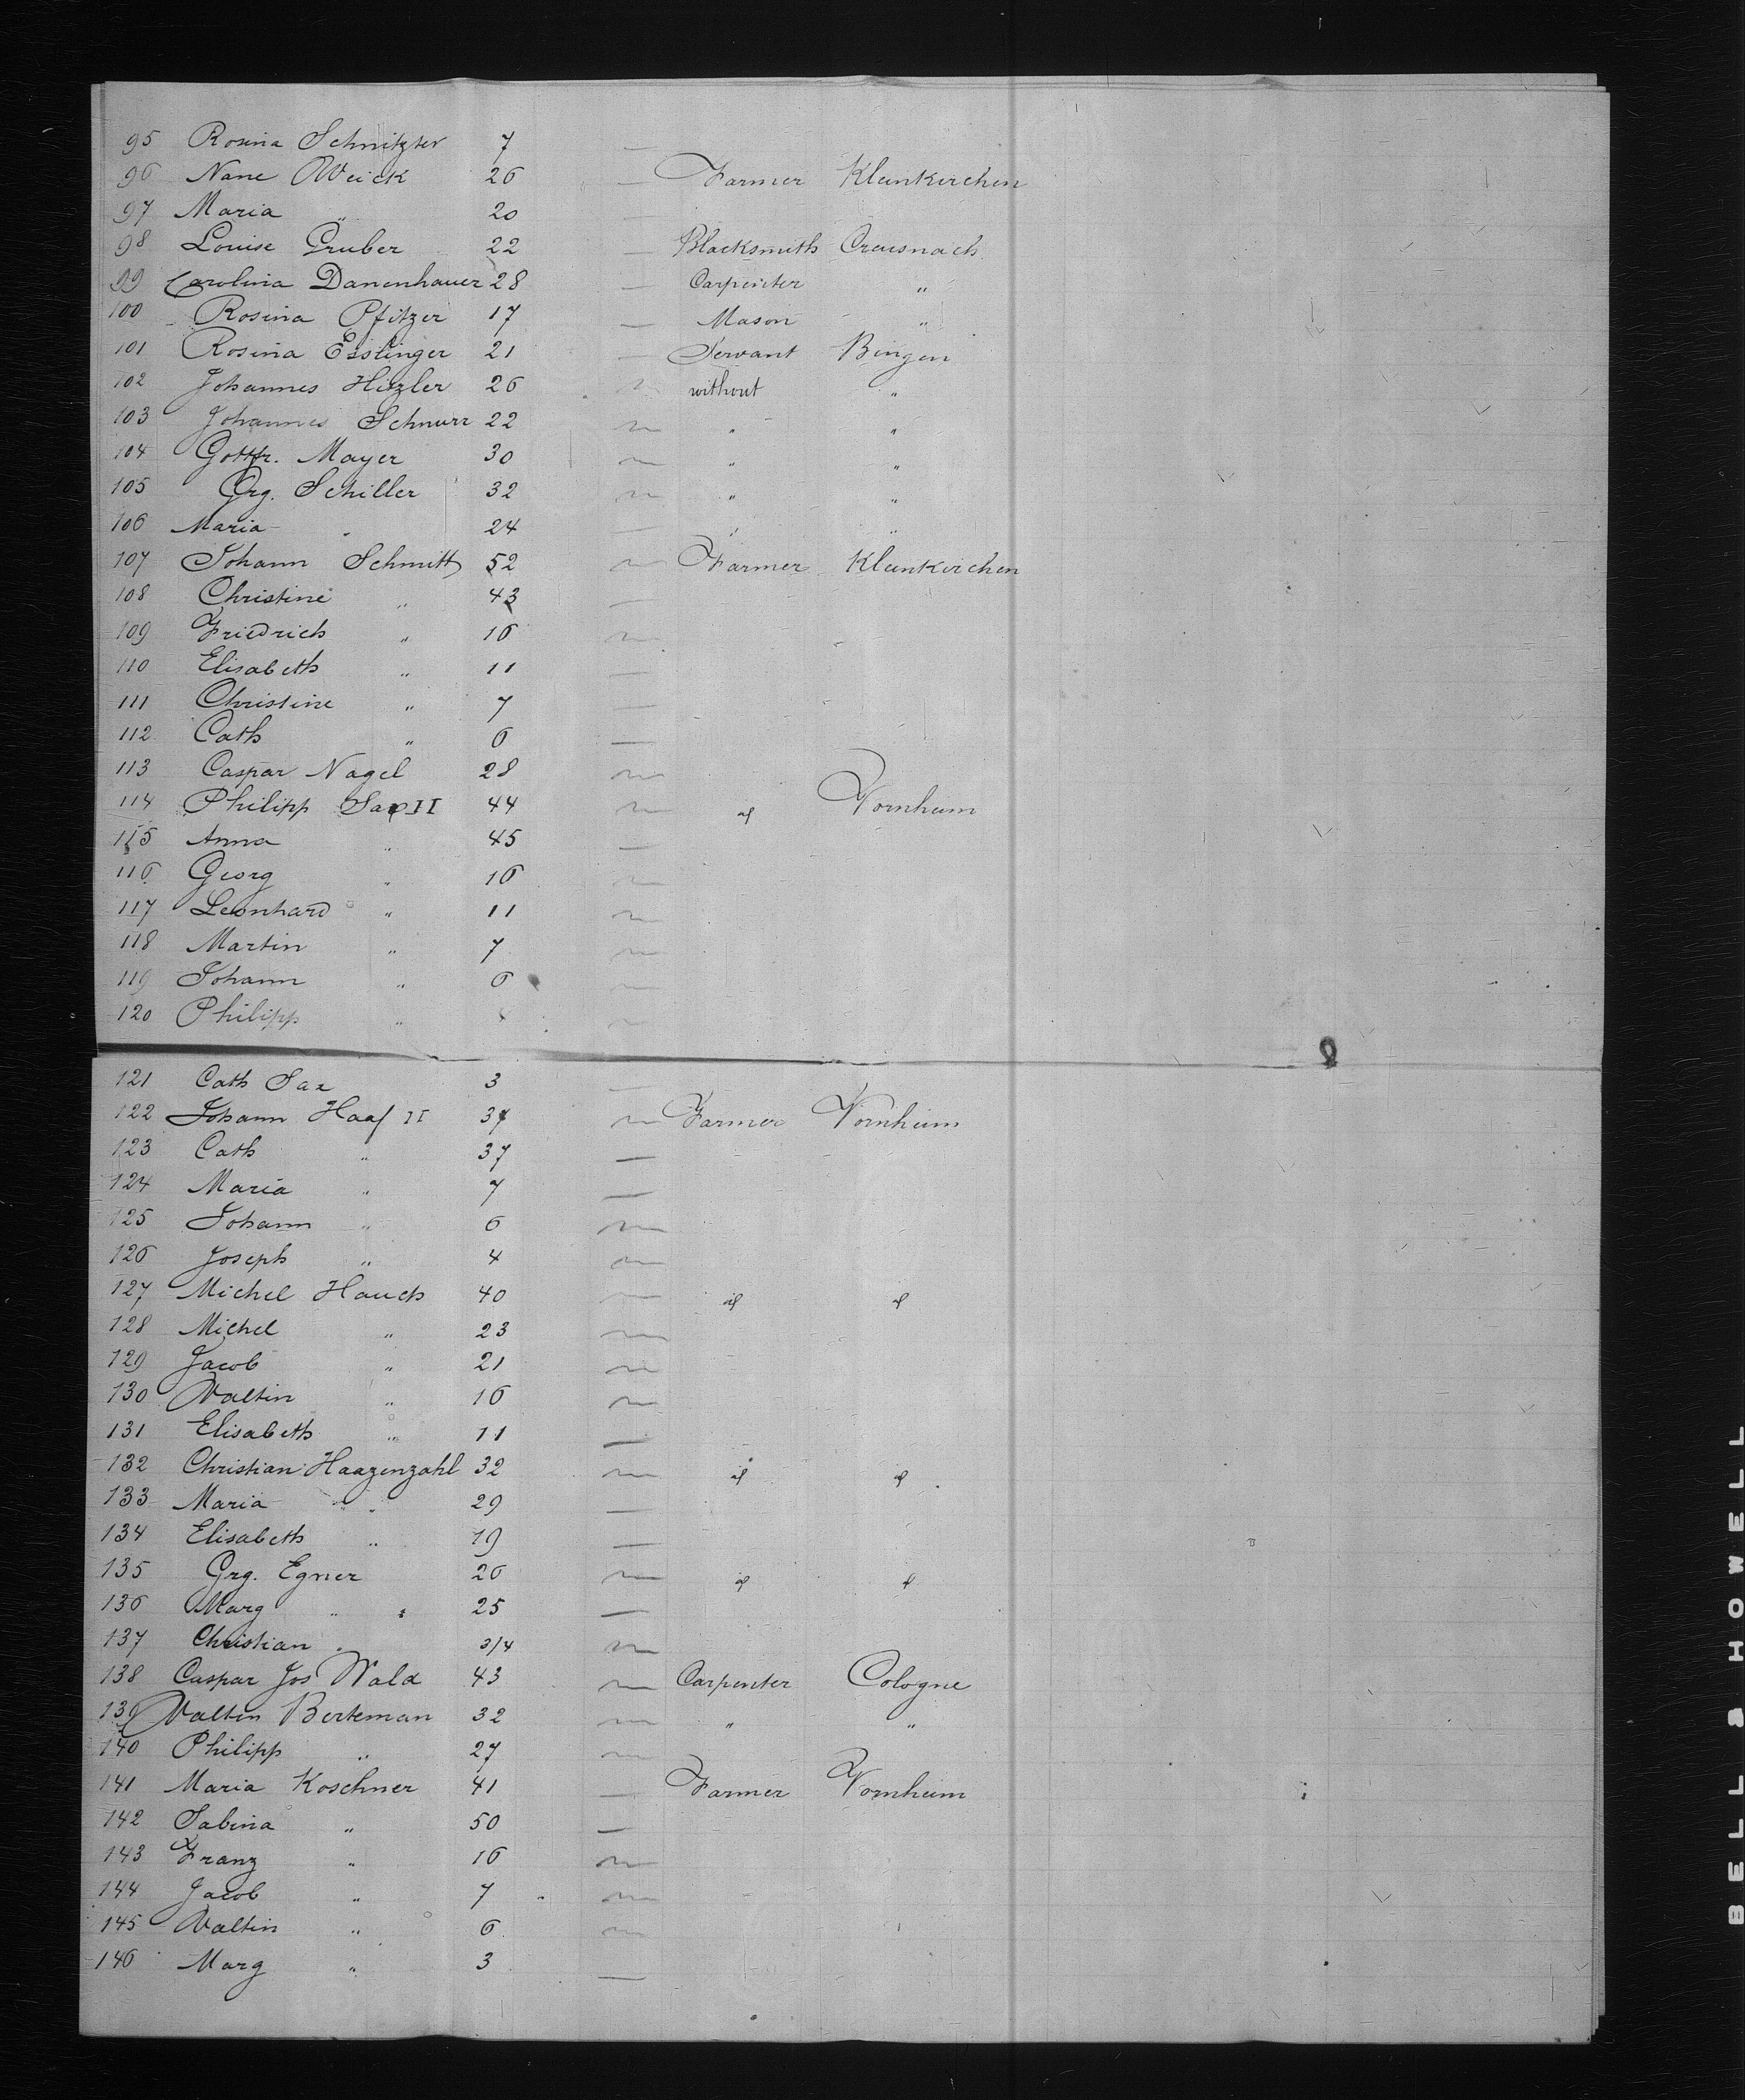 95 Rosina Schnitzler 7 —
96 Nane Weick 26 — Farmer Kleinkirchen
97 Maria " 20 —
98 Louise Gruber 22 — Blacksmith Creusnach
99 Carolina Danenhauer 28 — Carpenter "
100 Rosina Pfitzer 17 — Mason "
101 Rosina Esslinger 21 — Servant Bingen
102 Johannes Hizler 26 without "
103 Johannes Schnurr 22 " "
104 Gottfr. Mayer 30 " "
105 Grg. Schiller 32 " "
106 Maria " 24 — " "
107 Johann Schmitt 52 Farmer Kleinkirchen
108 Christine " 43 —
109 Friedrich " 16
110 Elisabeth " 11 —
111 Christine " 7 —
112 Cath " 6 —
113 Caspar Nagel 28
114 Philipp Sax II 44 Vornheim
115 Anna " 45 —
116 Georg " 16
117 Leonhard " 11
118 Martin " 7
119 Johann " 6
120 Philipp "
121 Cath Sax 3 —
122 Johann Haaf II 37 Farmer Vornheim
123 Cath " 37 —
124 Maria " 7 —
125 Johann " 6
126 Joseph " 4
127 Michel Hauch 40
128 Michel " 23
129 Jacob " 21
130 Valtin " 16
131 Elisabeth " 11 —
132 Christian Haazenzahl 32
133 Maria " 29 —
134 Elisabeth " 19 —
135 Grg. Egner 26
136 Marg " 25 —
137 Christian " 3/4
138 Caspar Jos Wald 43 Carpenter Cologne
139 Valtin Berteman 32 " "
140 Philipp " 27
141 Maria Koschner 41 — Farmer Vornheim
142 Sabina " 50 —
143 Franz " 16
144 Jacob " 7
145 Valtin " 6
146 Marg " 3 —
BELL & HOWELL